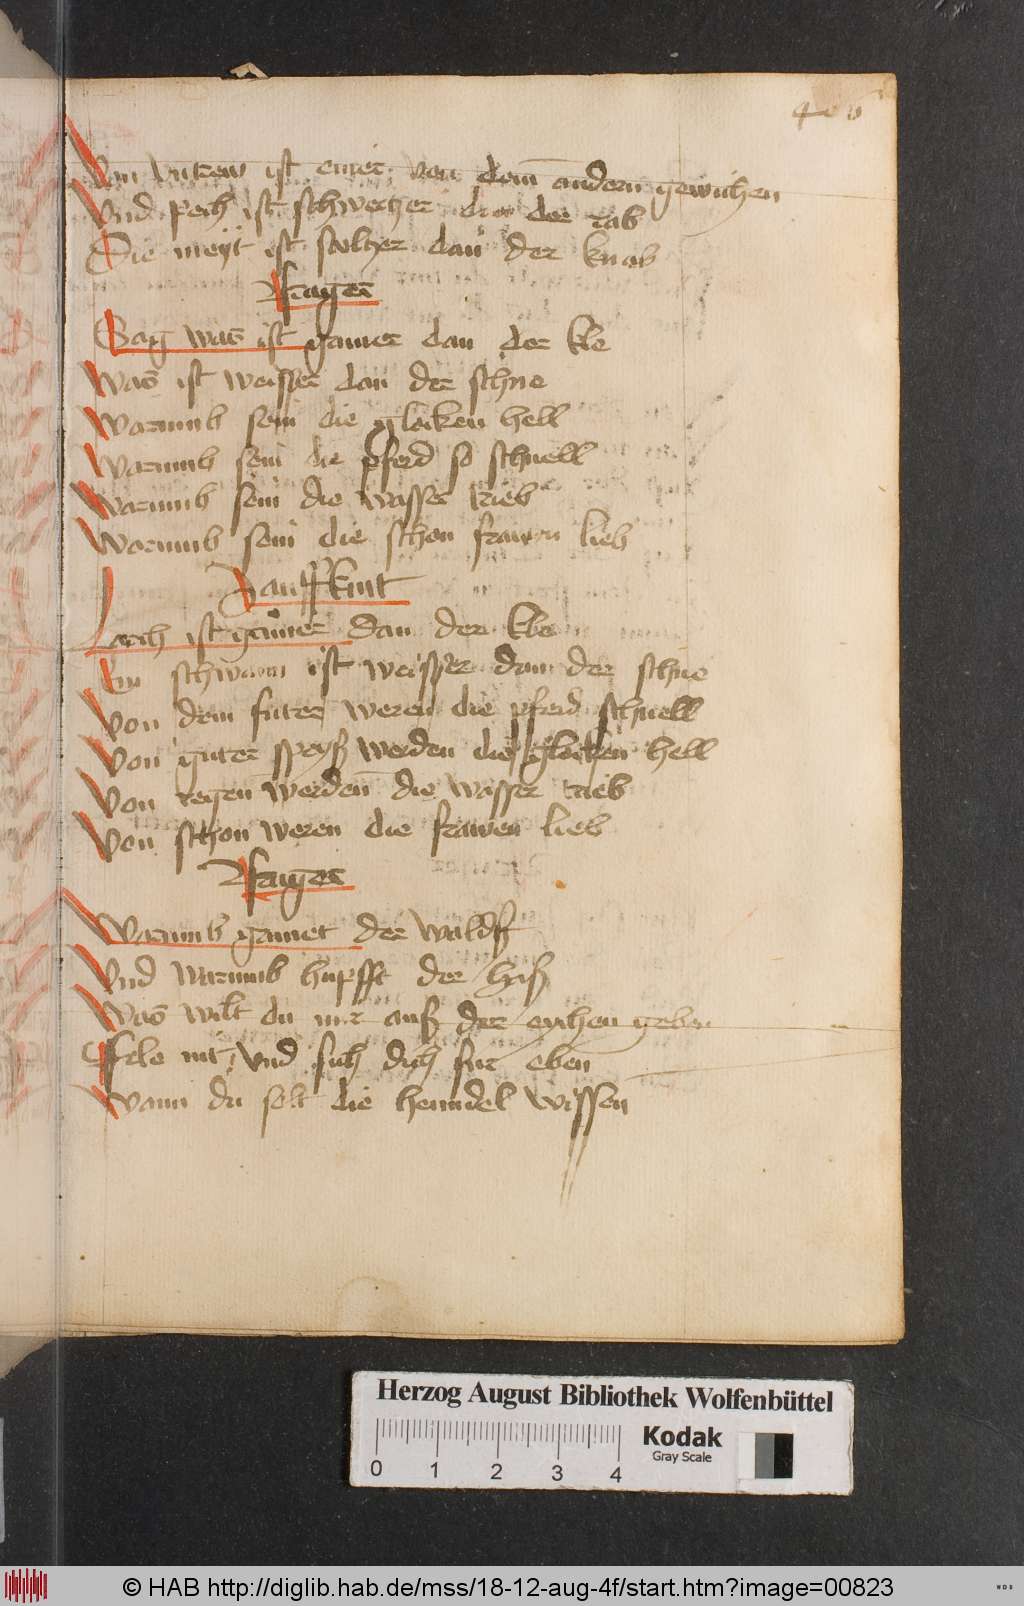 406
Von vntrew ist einer von dem andern gewichen
Vnd pech ist schwertzer dan der rab
Die meyt ist stoltzer dan der knab
Frager
Sag was ist gruner dan der kle
Was ist weisser dan der schne
Warumb sein die glocken hell
Warumb sein die pferd so schnell
Warumb sein die wasser trieb
Warumb sein die schon frawen lieb
Lauffkint
Lorch ist gruner dan der kle
Ein schwann ist weisser dan der schne
Von dem futer weren die pferd schnell
Von guter speyß werden die glocken hell
Von regen werden die wasser trieb
Von schon weren die frawen lieb
Frager
Warumb grunet der waldß
Vnd warumb hupfft der haß
Was wilt du mir auß der eychen geben
Fele nit vnd sich dich fur eben
Wann du solt die hemdel wissen
Herzog August Bibliothek Wolfenbüttel
Kodak
Gray Scale
0 1 2 3 4
© HAB http://diglib.hab.de/mss/18-12-aug-4f/start.htm?image=00823